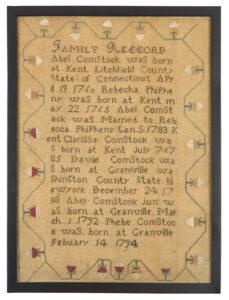 FAMILY RECCORD
Abel ComStock waS born
at Kent Litchfield County
State of Connecticut Apr
il 19 1760 Rebecha Phiphe
ny waS born at Kent m
ay 22 1765 Abel ComSt
ock waS Married to Reb
ecca PhiPheny Jan.5.1783 K
ent ClariSSa ComStock wa
S born at Kent July 7 17
85 David ComStock wa
S born at Granville wa
Shinſton County State N
ewyork December 24 17
88 Abel ComStock Jun w
as born at Granville Mar
ch 5 1792 Phebe ComStoc
k waS born at Granville
Febuary 14 1794